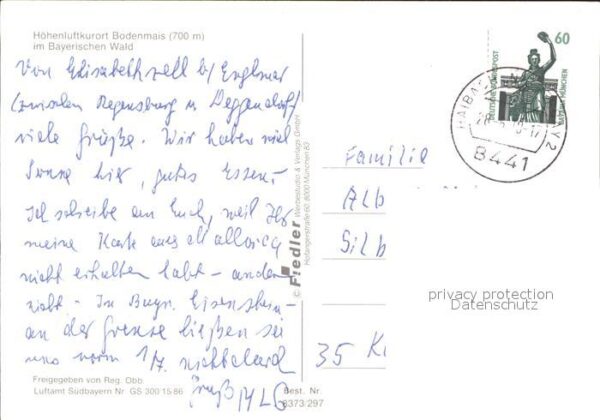 Höhenluftkurort Bodenmais (700 m)
im Bayerischen Wald
Von Elisabethszell b/ Englmar
(zwischen Regensburg u Deggendorf)
viele Grüße. Wir haben viel
Sonne hier, gutes Essen.-
Ich schreibe an Euch, weil Ihr
meine Karte aus Mallorca
nicht erhalten habt - andere
nicht - In Bayr. Eisenstein -
an der Grenze ließen sie
uns vorm 1/7. nicht
Gruß
Freigegeben von Reg. Obb.
Luftamt Südbayern Nr. GS 300 15 86
Best. Nr.
8373/297
© Fiedler Werbestudio & Verlags GmbH
8000 München 82
60
DEUTSCHE BUNDESPOST
BAVARIA MÜNCHEN
HAIBACH
8441
Familie
Alb
Silb
35 K
privacy protection
Datenschutz